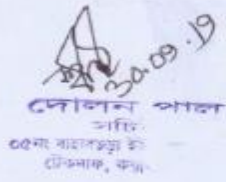 30.09.19
দোলন পাল
সচিব
০৫নং বাহারছড়া ই
টেকনাফ, কক্স